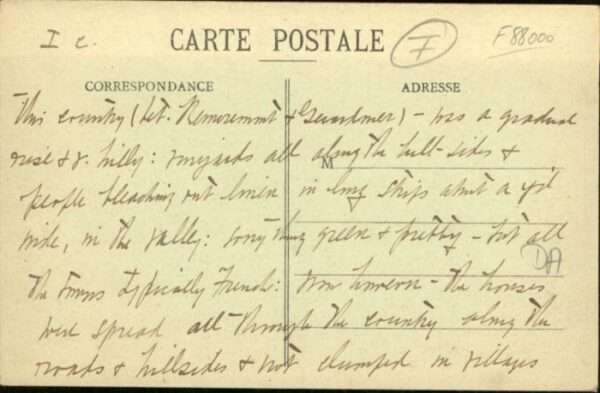 I c.
CARTE POSTALE
I
F88000
CORRESPONDANCE
ADRESSE
M
DA
This country (bet. Remiremont & Gerardmer) - was a gradual
rise & v. hilly: vineyards all along the hill-sides &
people bleaching out linen in long strips about a y'd
wide, in the valley: everything green & pretty - but all
the towns typically French: now however - the houses
were spread all through the country along the
roads & hillsides & not clumped in villages